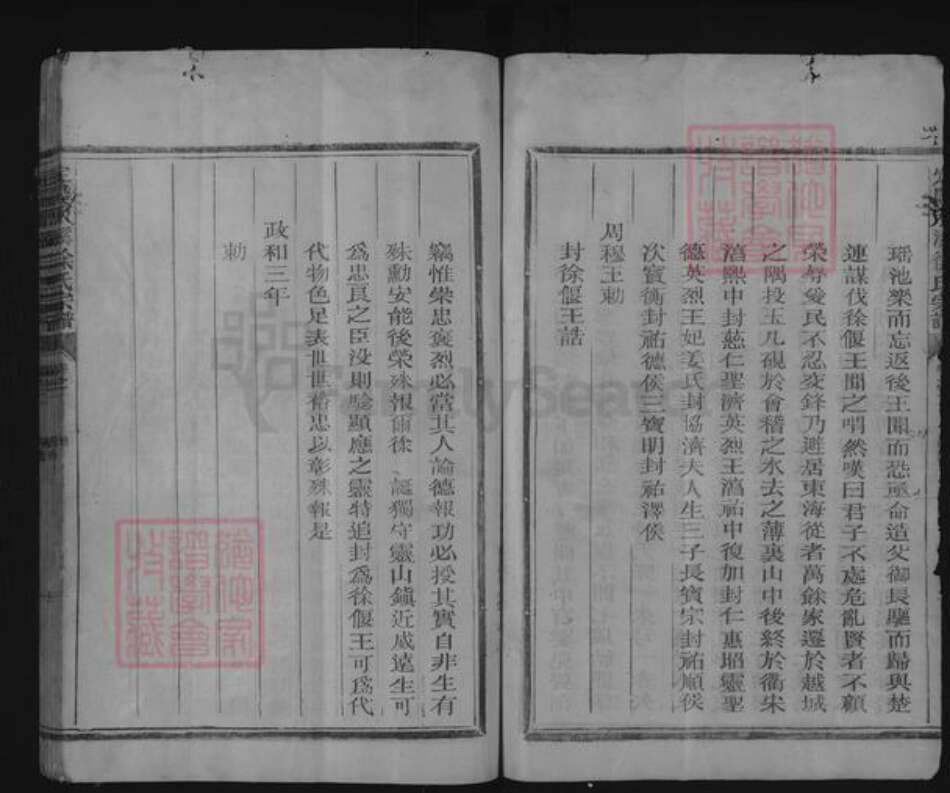 瑶池樂而忘返後王聞而恐亟命造父御長驅而歸與楚
連謀伐徐偃王聞之喟然嘆曰君子不處危亂賢者不顧
榮辱愛民不忍交鋒乃避居東海從者萬餘家遷於越城
之隅投玉几硯於會稽之水去之薄裏山中後終於衢宋
淳熙中封慈仁聖濟英烈王淳祐中復加封仁惠昭靈聖
德英烈王妃姜氏封協濟夫人生三子長寶宗封祐順侯
次寶衡封祐德侯三寶明封祐澤侯
周穆王勅
封徐偃王誥
竊惟崇忠褒烈必當其人論德報功必授其實自非生有
殊勳安能後榮殊報爾徐 誕獨守靈山鎮近威遠生可
為忠良之臣沒則噞顯應之靈特追封為徐偃王可為代
代物色足表世世脩忠以彰殊報是
政和三年
勅
FamilySearch